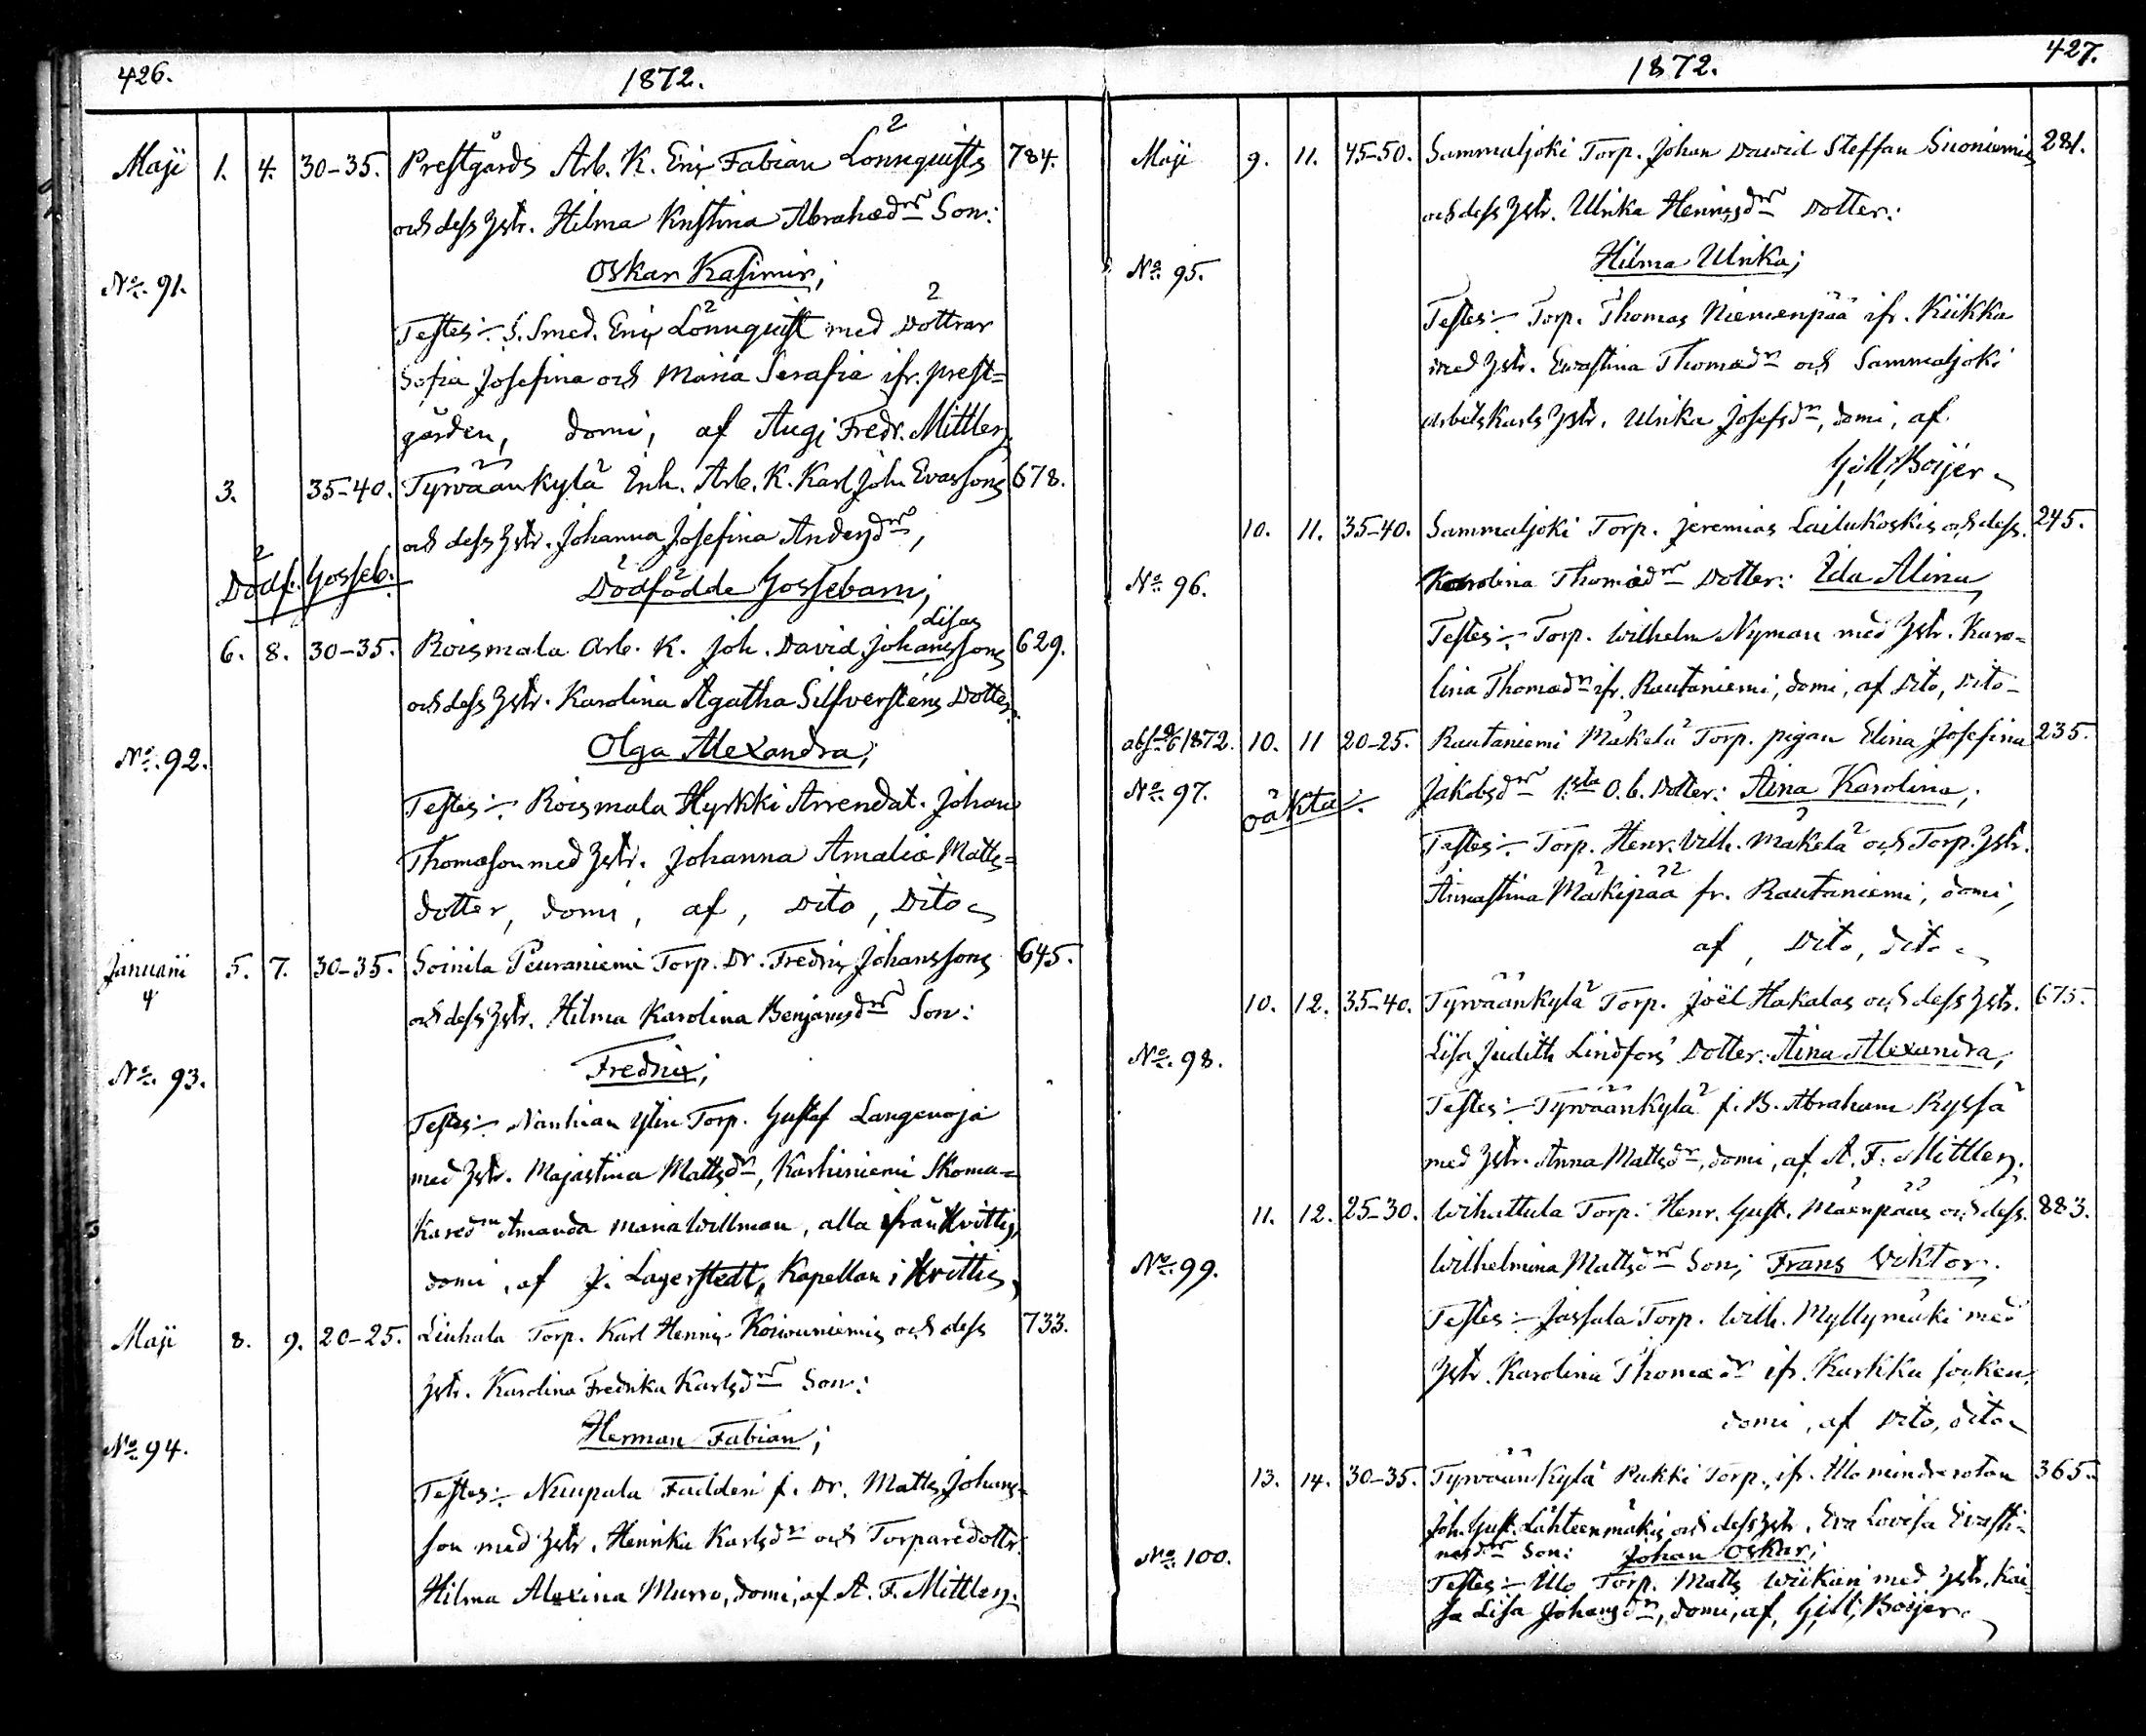 426.
1872.
Maji 1. 4. 30-35. Prestgårds Arb. K. Eric Fabian Lönnquists 784.
och dess hstr. Hilma Kristina Abrahædr Son:
Oskar Kasimir;
No. 91.
Testes:- S. Smed. Eric Lönnquist med Döttrar
Sofia Josefina och Maria Serafia ifr. prest=
gården, domi, af Aug; Fredr. Mittler.
3. 35-40. Tyrväänkylä Inh. Arb. K. Karl Joh. Evassons 678.
och dess hstr. Johanna Josefina Andersdr,
Dödf. Gosseb. Dödfödde Gossebarn;
Lisas
6. 8. 30-35. Roismala Arb. K. Joh. David Johanssons 629.
och dess hstr. Karolina Agatha Silfverstens Dotter:
Olga Alexandra;
No. 92.
Testes:- Roismala Hyrkki Arrendat. Johan
Thomasson med hstr. Johanna Amalia Matts=
dotter, domi, af, Dito, Dito
Januarii 5. 7. 30-35. Soinila Peuraniemi Torp. Dr. Fredric Johanssons 645.
4
och dess hstr. Hilma Karolina Benjamsdr Son:
Fredric;
No. 93.
Testes:- Nanhian Ylin Torp. Gustaf Langenoja
med hstr. Majastina Mattsdr, Karhiniemi Skoma=
karedr Amanda Maria Willman, alla ifrån Hvittis,
domi, af J. Lagerstedt, Kapellan i Hvittis,
Maji 8. 9. 20-25. Liuhala Torp. Karl Henric Koivuniemis och dess 733.
hstr. Karolina Fredrika Karlsdr Son:
Herman Fabian;
No. 94.
Testes:- Nuupala Fadderi f. Dr. Matts Johans=
son med hstr. Henrika Karlsdr och Torparedottr.
Hilma Alexina Murro, domi, af A. F. Mittler.
427.
1872.
Maji 9. 11. 45-50. Sammaljoki Torp. Johan David Steffan Suoniemis 281.
och dess hstr. Ulrika Henricsdr Dotter:
Hilma Ulrika;
No. 95.
Testes:- Torp. Thomas Niemenpää ifr. Kiikka
med hstr. Evastina Thomædr och Sammaljoki
arbetskarls hstr. Ulrika Josefsdr, domi, af
G; M; Boijer
10. 11. 35-40. Sammaljoki Torp. Jeremias Lailukoskis och dess. 245.
No. 96.
Karolina Thomædr Dotter: Ida Alina
Testes:- Torp. Wilhelm Nyman med hstr. Karo=
lina Thomædr ifr. Rautaniemi, domi, af Dito, Dito
1872. 10. 11 20-25. Rautaniemi Mäkelä Torp. pigan Elina Josefina 235.
No. 97. oäkta:
Jakobsdr 1sta O. b. Dotter: Aina Karolina,
Testes:- Torp. Henr. Wilh. Mäkelä och Torp. hstr.
Annastina Mäkipää fr. Rautaniemi, domi,
af, Dito, dito
10. 12. 35-40. Tyrväänkylä Torp. Joël Hakalas och dess hstr. 675.
No. 98.
Lisa Judith Lindfors' Dotter: Aina Alexandra,
Testes:- Tyrväänkylä f. B. Abraham Ryssä
med hstr. Anna Mattsdr, domi, af A. F. Mittler.
11. 12. 25-30. Wihattula Torp. Henr. Gust. Mäenpääs och dess. 883.
No. 99.
Wilhelmina Mattsdr Son; Frans Viktor.
Testes:- Jassala Torp. Wilh. Myllymäki med
hstr. Karolina Thomædr ifr. Karkku socken,
domi, af Dito, dito
13. 14. 30-35. Tyrväänkylä Pukki Torp. ifr. Illo mindre rotan 365.
Joh. Gust. Lähteenmäkis och dess hstr. Eva Lovisa Evasti=
nasdr Son: Johan Oskar;
No. 100.
Testes:- Illo Torp. Matts Wiikari med hstr. Kai=
sa Lisa Johansdr, domi, af, G; M; Boijer.